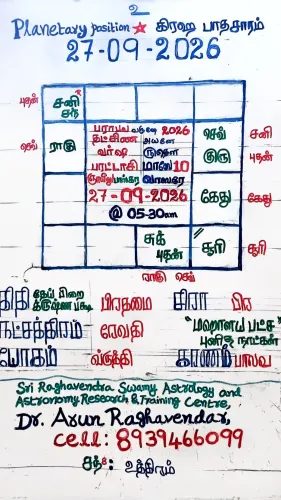 2
Planetary position ★ கிரஹ பாதசாரம்
27-09-2026
புதன்
சனி
சந்
செவ்
ராகு
பராபவ வருஷ 2026
தட்சிண அயனே
வர்ஷ ருதௌ
புரட்டாசி மாஸே 10
பானுவாஸரே
27-09-2026
@ 05-30am
செவ்
குரு
சனி
புதன்
கேது
கேது
சுக்
புதன்
சூரி
சூரி
ராகு செவ்
திதி தேய் பிறை கிருஷ்ண பக்ஷ பிரதமை சிரா
நட்சத்திரம் ரேவதி "மஹாளய பட்ச" புனித நாட்கள்
யோகம் வ்ருத்தி கரணம் பாலவ
Sri Raghavendra Swamy Astrology and
Astronomy, Research & Training Centre,
Dr. Arun Raghavendar,
Cell: 8939466099
சந் உத்திரம்